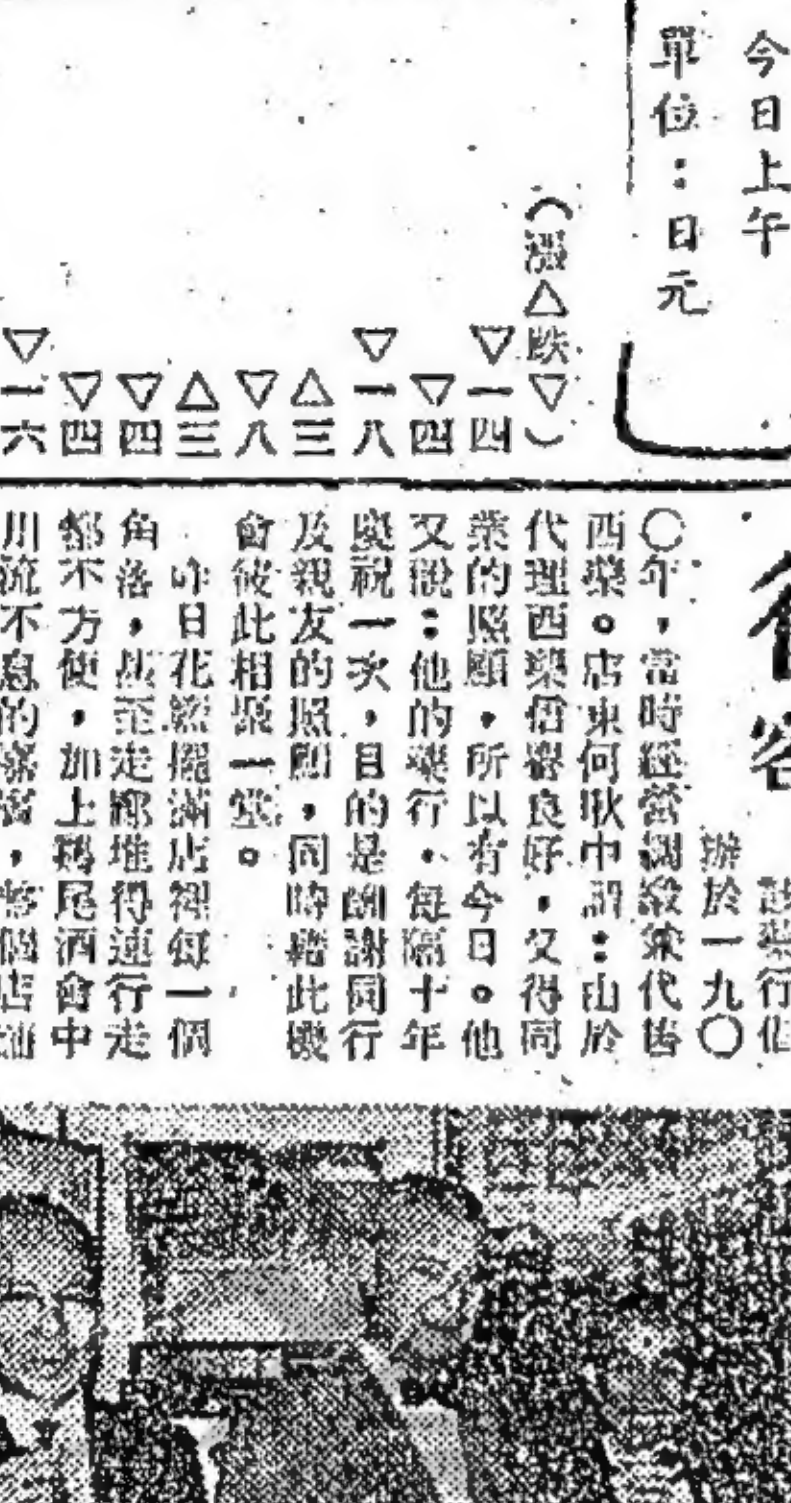 今日上午
單位：日元
（漲△跌▽）
▽一四
▽四
▽一八
△三
▽八
△三
▽四
▽四
▽一六
客
該藥行
辦於一九〇
〇年，當時經營綢緞兼代售
西藥。店東何耿中謂：由於
代理西藥信譽良好，又得同
業的照顧，所以有今日。他
又說：他的藥行，每隔十年
慶祝一次，目的是酬謝同行
及親友的照顧，同時藉此機
會彼此相聚一堂。
昨日花籃擺滿店裡每一個
角落，甚至走廊堆得連行走
都不方便，加上鷄尾酒會中
川流不息的嘉賓，整個店鋪